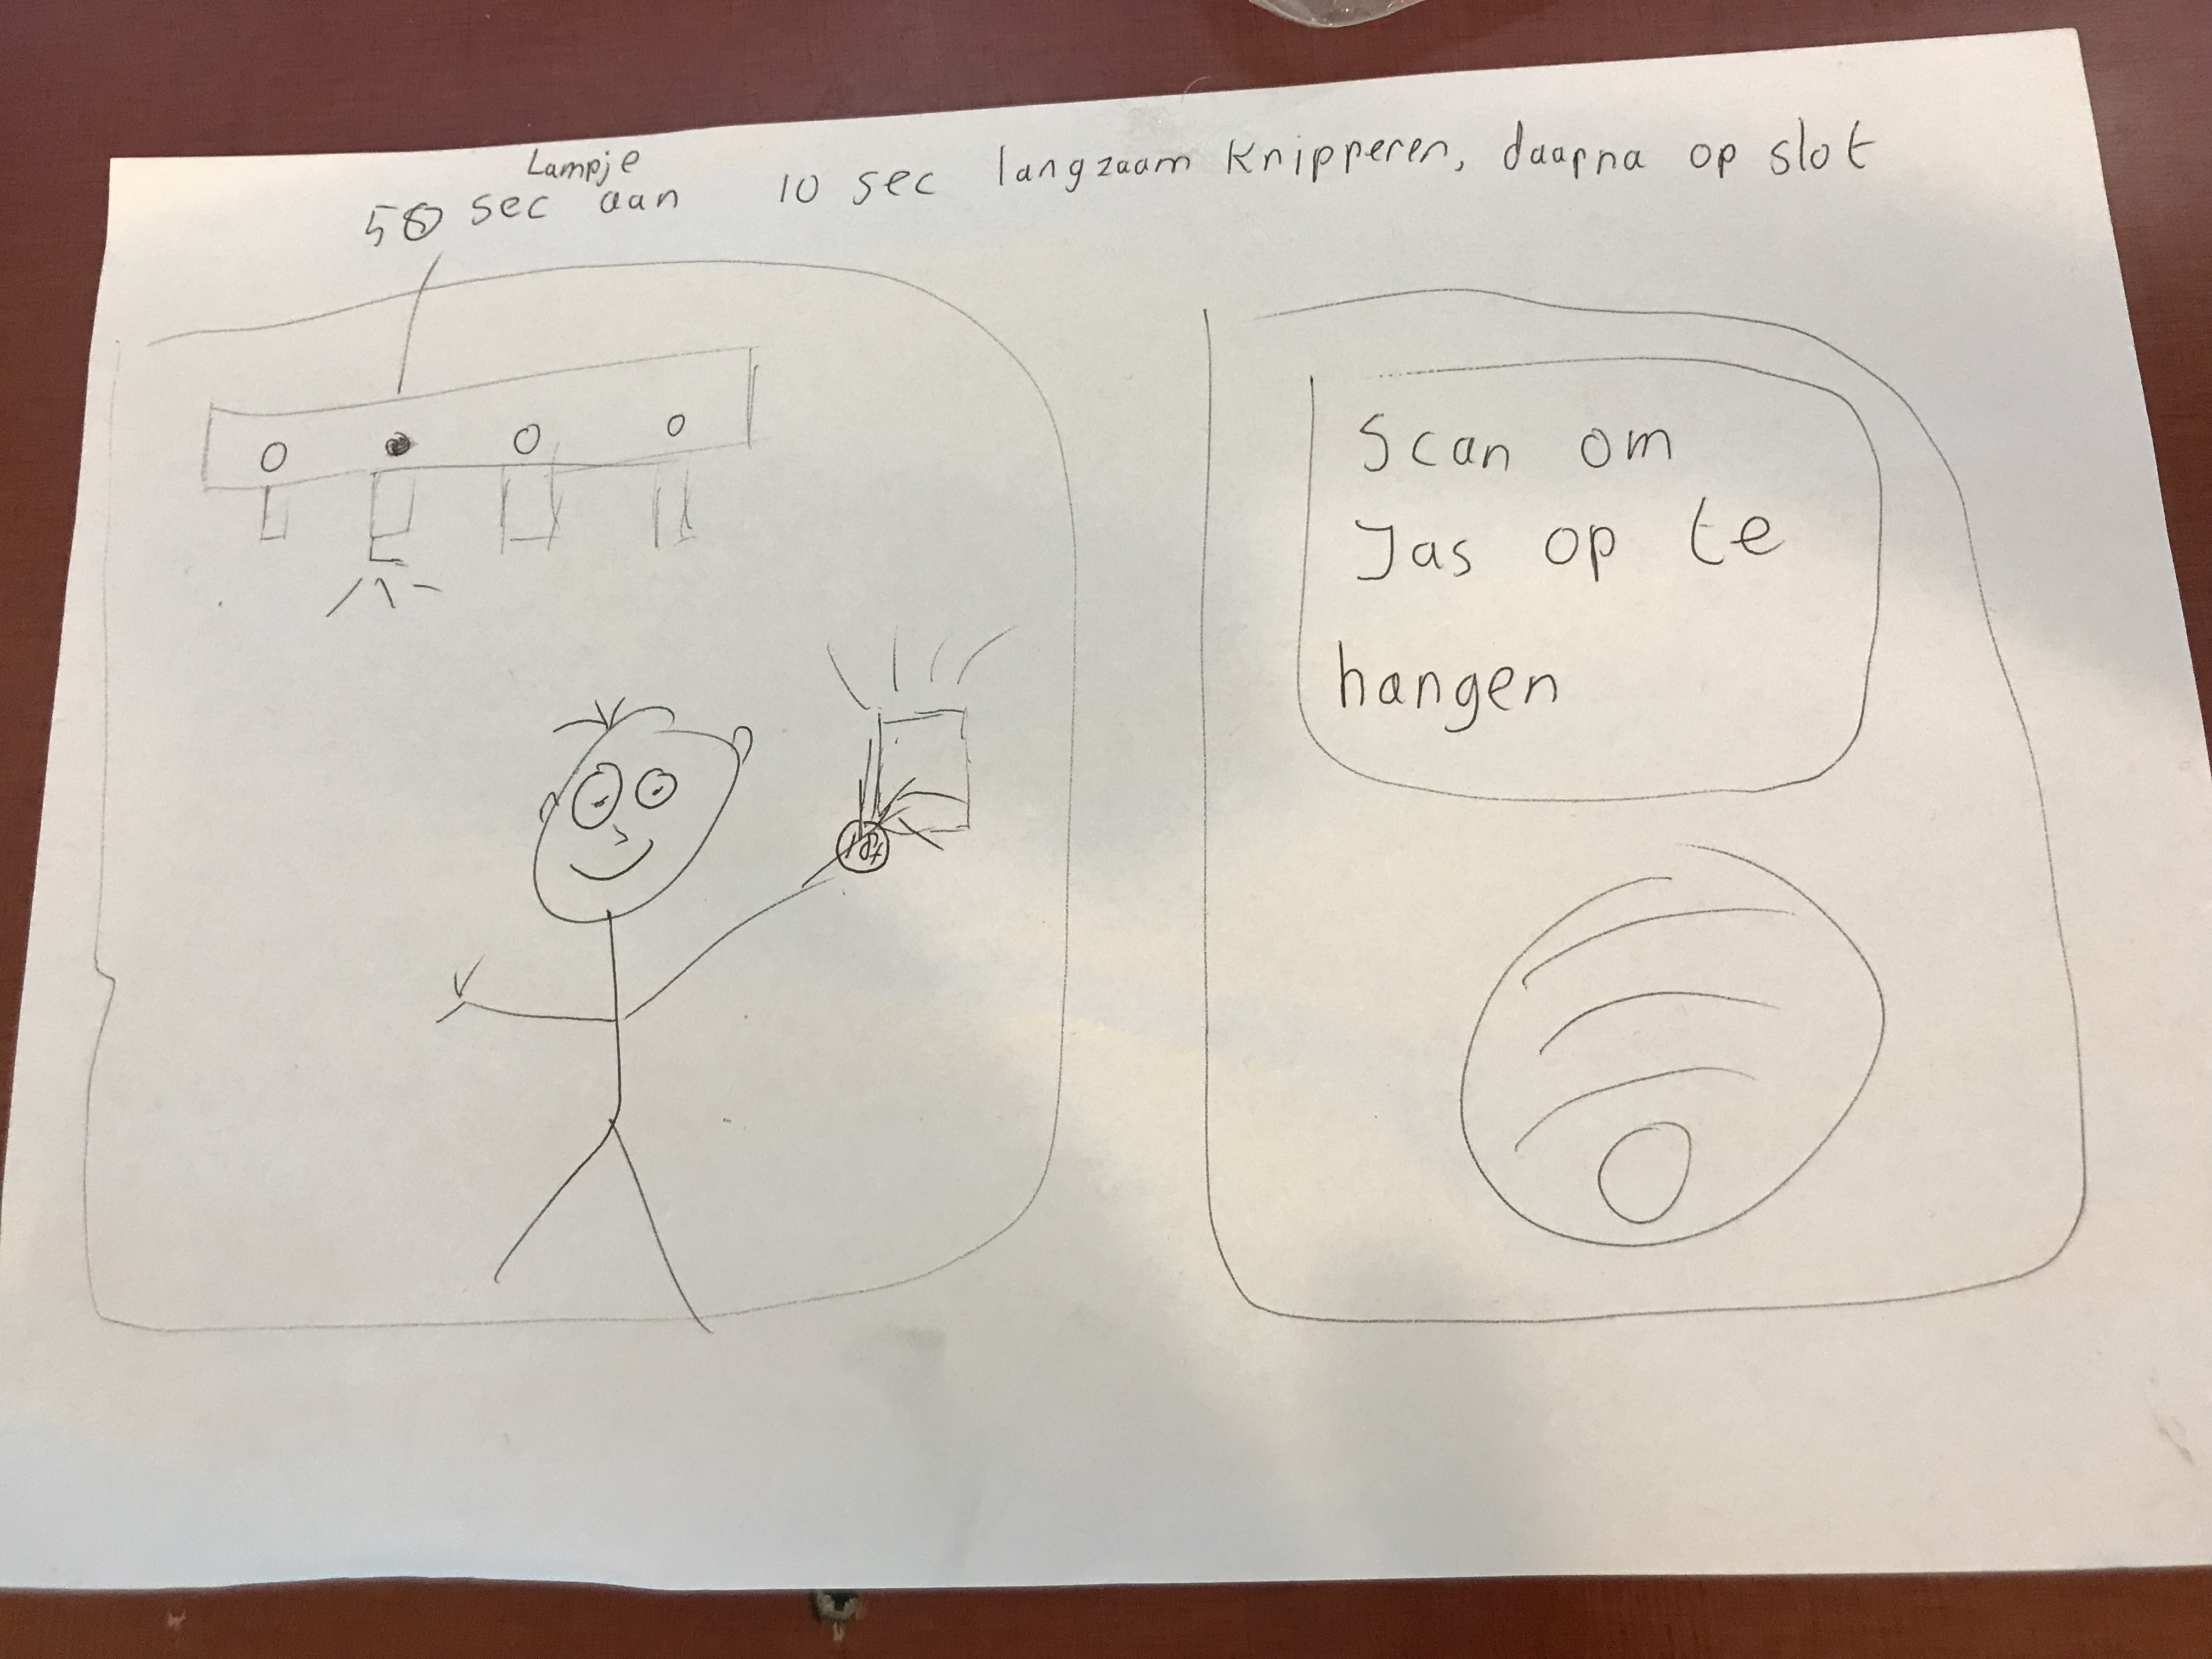 Lampje
50 sec aan 10 sec langzaam Knipperen, daarna op slot
Scan om
Jas op te
hangen